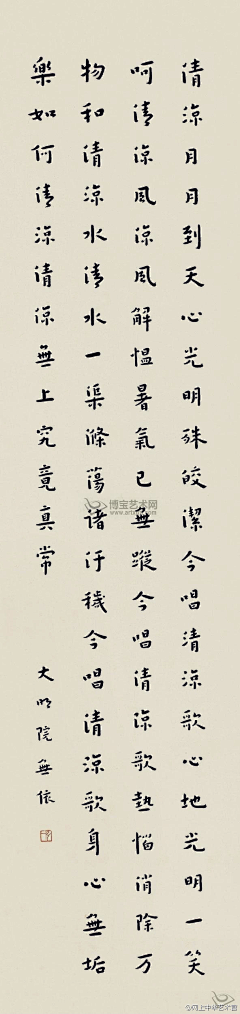 清涼月月到天心光明殊皎潔今唱清涼歌心地光明一笑
呵清涼風涼風解慍暑氣已無蹤今唱清涼歌熱惱消除万
物和清涼水清水一渠滌蕩諸汙穢今唱清涼歌身心無垢
樂如何清涼清涼無上究竟真常
大明院無依
博宝艺术网